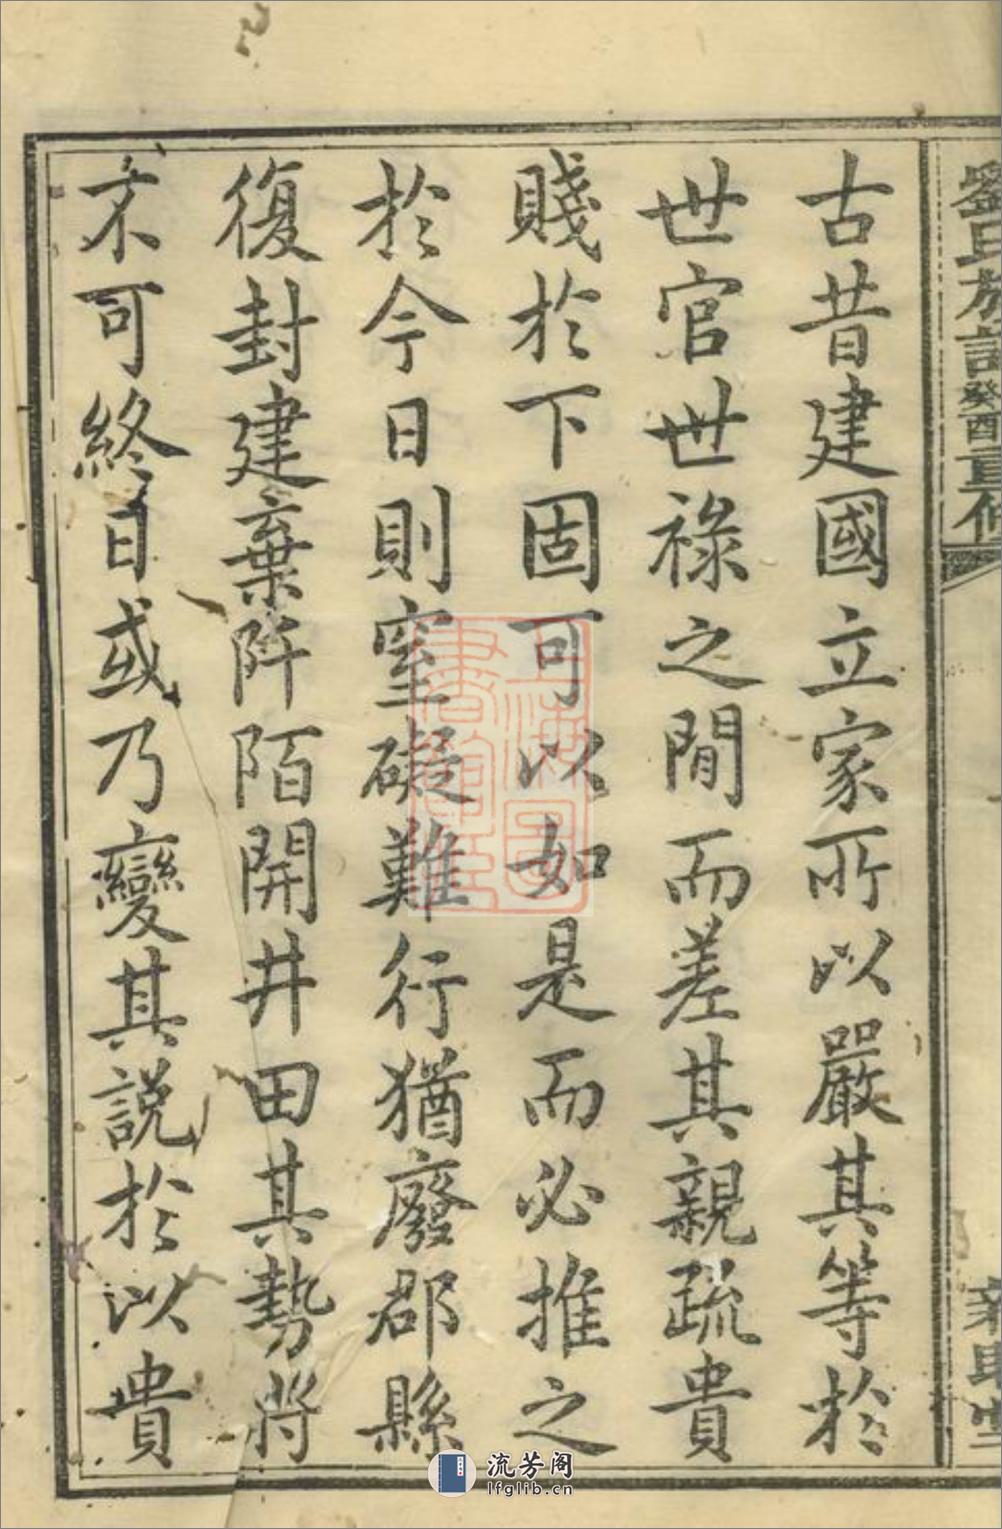 劉氏族譜癸酉重修
古昔建國立家所以嚴其等於
世官世祿之間而差其親疏貴
賤於下固可以如是而必推之
於今日則窒礙難行猶廢郡縣
復封建棄阡陌開井田其勢將
不可終日或乃變其說於以貴
上海圖書館藏
流芳阁
lfglib.cn